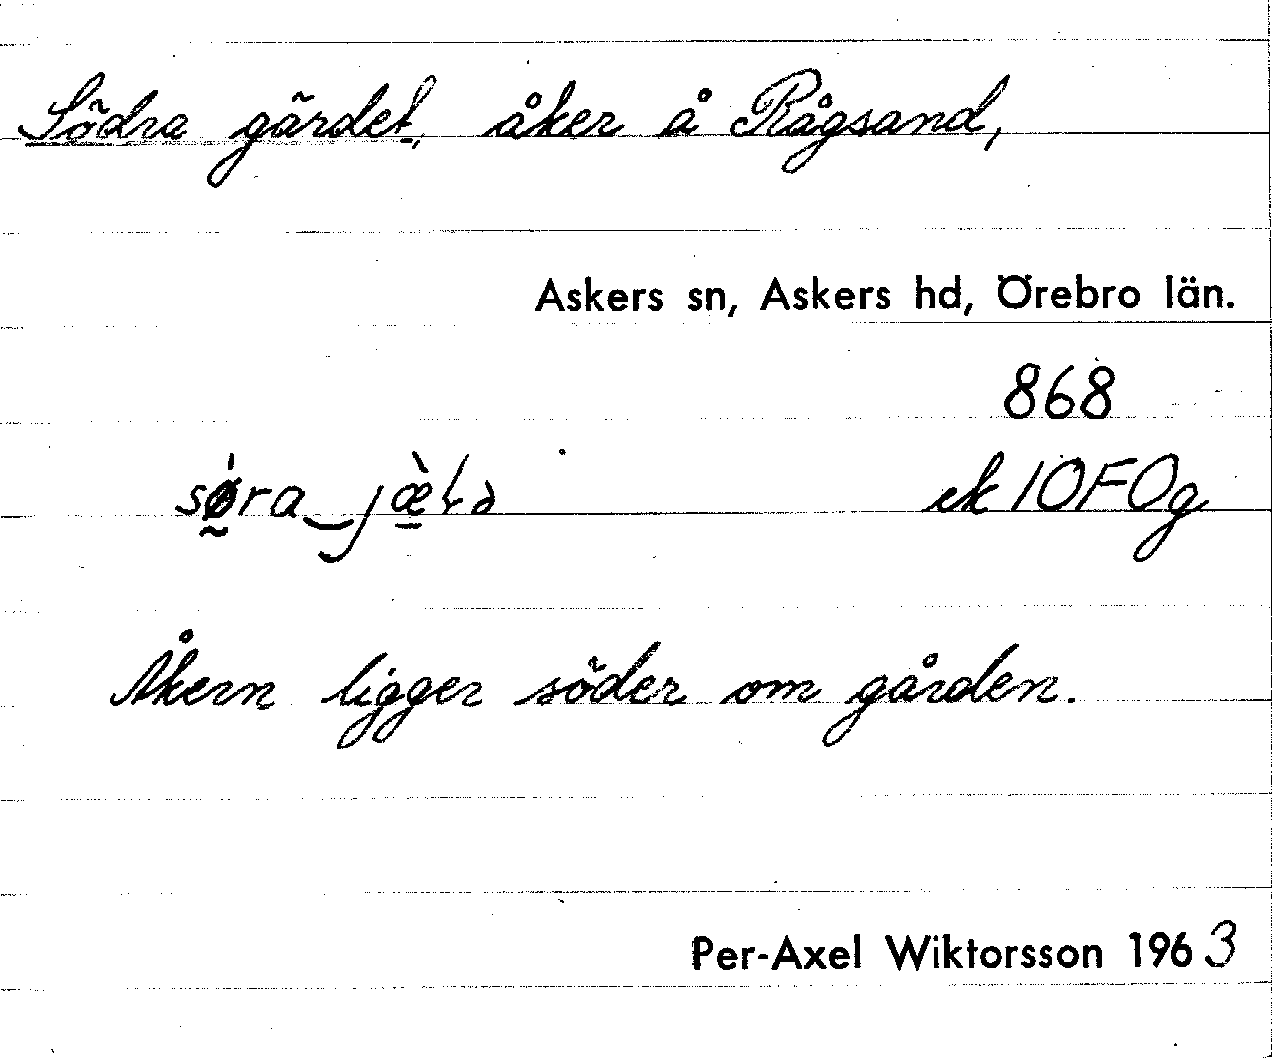 Södra gärdet, åker å Rågsand,
Askers sn, Askers hd, Örebro län.
868
ek 10F0g
Åkern ligger söder om gården.
Per-Axel Wiktorsson 1963